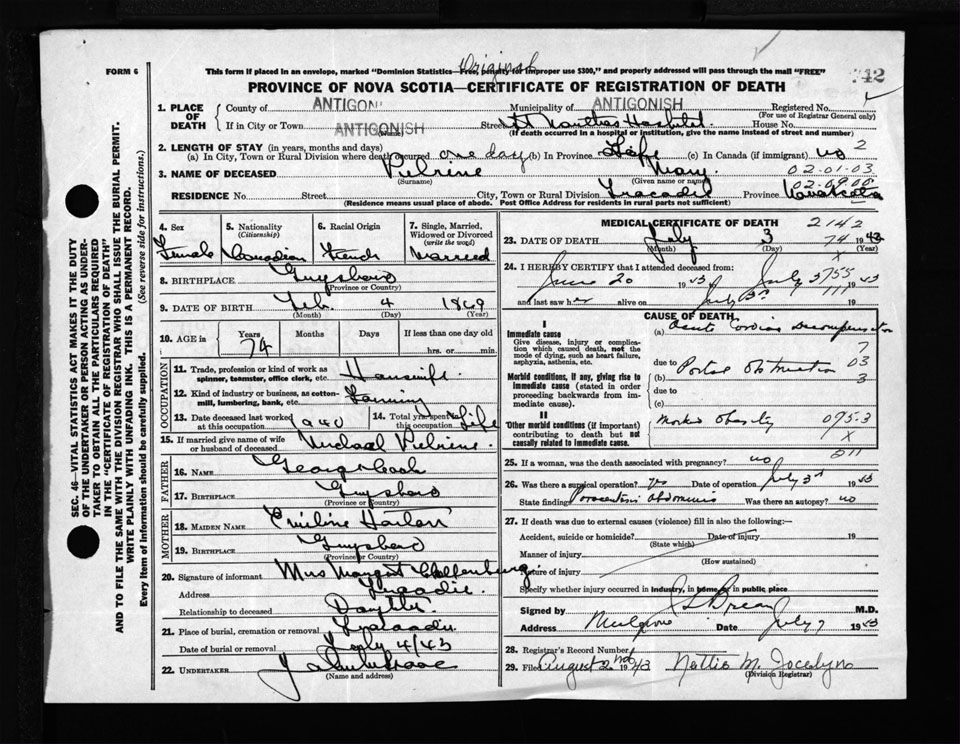 Original
FORM 6
This form if placed in an envelope, marked "Dominion Statistics—Free, penalty for improper use $300," and properly addressed will pass through the mail "FREE"
742
PROVINCE OF NOVA SCOTIA—CERTIFICATE OF REGISTRATION OF DEATH
SEC. 46—VITAL STATISTICS ACT MAKES IT THE DUTY
OF THE UNDERTAKER OR PERSON ACTING AS UNDER-
TAKER TO OBTAIN ALL THE PARTICULARS REQUIRED
IN THE "CERTIFICATE OF REGISTRATION OF DEATH"
AND TO FILE THE SAME WITH THE DIVISION REGISTRAR WHO SHALL ISSUE THE BURIAL PERMIT.
WRITE PLAINLY WITH UNFADING INK. THIS IS A PERMANENT RECORD.
Every item of information should be carefully supplied. (See reverse side for instructions.)
1. PLACE OF DEATH
County of ANTIGON Municipality of ANTIGONISH Registered No.
(For use of Registrar General only)
If in City or Town ANTIGONISH Street St Marthas Hospital House No.
(If death occurred in a hospital or institution, give the name instead of street and number)
2. LENGTH OF STAY (in years, months and days)
(a) In City, Town or Rural Division where death occurred one day (b) In Province Life (c) In Canada (if immigrant) no 2
3. NAME OF DECEASED Pelrine Mary 02-01-03
(Surname) (Given name or names)
RESIDENCE No. Street City, Town or Rural Division Tracadie Province Nova Scotia 02-09.00
(Residence means usual place of abode. Post Office Address for residents in rural parts not sufficient)
4. Sex
Female
5. Nationality
(Citizenship)
Canadian
6. Racial Origin
French
7. Single, Married, Widowed or Divorced
(write the word)
Married
8. BIRTHPLACE Guysboro
(Province or Country)
9. DATE OF BIRTH Feb. 4 1869
(Month) (Day) (Year)
10. AGE in Years Months Days If less than one day old
74 hrs. or min.
OCCUPATION
11. Trade, profession or kind of work as spinner, teamster, office clerk, etc. Housewife
12. Kind of industry or business, as cotton-mill, lumbering, bank, etc. Farming
13. Date deceased last worked at this occupation 1940
14. Total yrs. spent in this occupation Life
15. If married give name of wife or husband of deceased Michael Pelrine.
FATHER
16. NAME George
17. BIRTHPLACE Guysboro
(Province or Country)
MOTHER
18. MAIDEN NAME Emiline
19. BIRTHPLACE Guysboro
(Province or Country)
20. Signature of informant Mrs Margaret
Address Tracadie.
Relationship to deceased Daughter.
21. Place of burial, cremation or removal Tracadie
Date of burial or removal July 4/43
22. UNDERTAKER
(Name and address)
MEDICAL CERTIFICATE OF DEATH 2142
23. DATE OF DEATH July 3 1943
(Month) (Day) 74
24. I HEREBY CERTIFY that I attended deceased from:
June 20 1943 July 3 1943
and last saw her alive on July 3rd 19
CAUSE OF DEATH
I
Immediate cause
Give disease, injury or complication which caused death, not the mode of dying, such as heart failure, asphyxia, asthenia, etc.
(a) Acute Cardiac Decompensation
due to
Morbid conditions, if any, giving rise to immediate cause (stated in order proceeding backwards from immediate cause).
(b) Portal Obstruction
due to
(c)
II
Other morbid conditions (if important) contributing to death but not causally related to immediate cause.
Marked Obesity 095-3
X
25. If a woman, was the death associated with pregnancy? no
26. Was there a surgical operation? Yes Date of operation July 3rd 1943
State finding Paracentesis Abdominis Was there an autopsy? no
27. If death was due to external causes (violence) fill in also the following:—
Accident, suicide or homicide? Date of injury 19
(State which)
Manner of injury
(How sustained)
Nature of injury
Specify whether injury occurred in industry, in home, or in public place
Signed by M.D.
Address Mulgrave Date July 7 1943
28. Registrar's Record Number
29. Filed August 2nd 1943 Nettie M. Jocelyn
(Division Registrar)